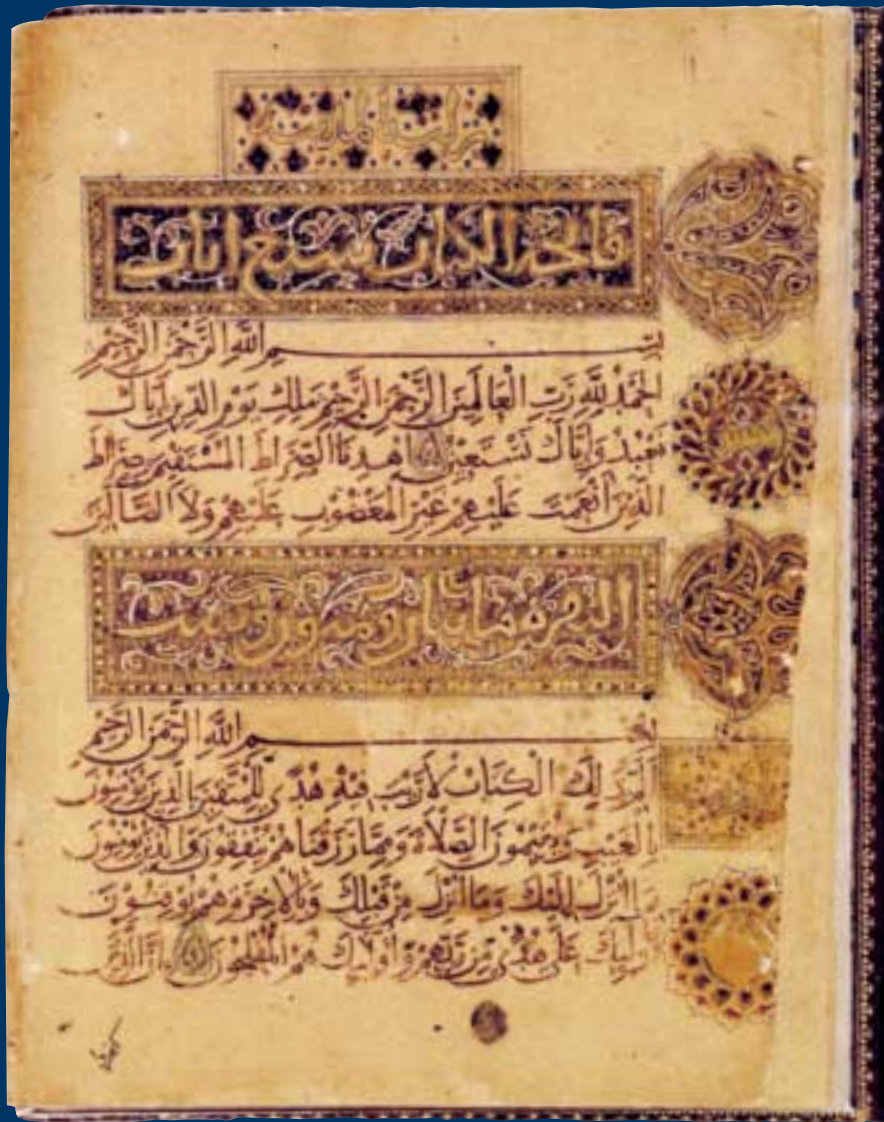 فاتحة الكتاب سبع ايات
بسم الله الرحمن الرحيم
الحمد لله رب العالمين الرحمن الرحيم ملك يوم الدين اياك
نعبد واياك نستعين اهدنا الصراط المستقيم صراط
الذين أنعمت عليهم غير المغضوب عليهم ولا الضالين
البقرة مايتان وست
بسم الله الرحمن الرحيم
الم ذلك الكتاب لا ريب فيه هدى للمتقين الذين يؤمنون
بالغيب ويقيمون الصلاة ومما رزقناهم ينفقون والذين يؤمنون
بما أنزل إليك وما أنزل من قبلك وبالاخرة هم يوقنون
أوليك على هدى من ربهم وأوليك هم المفلحون إن الذين